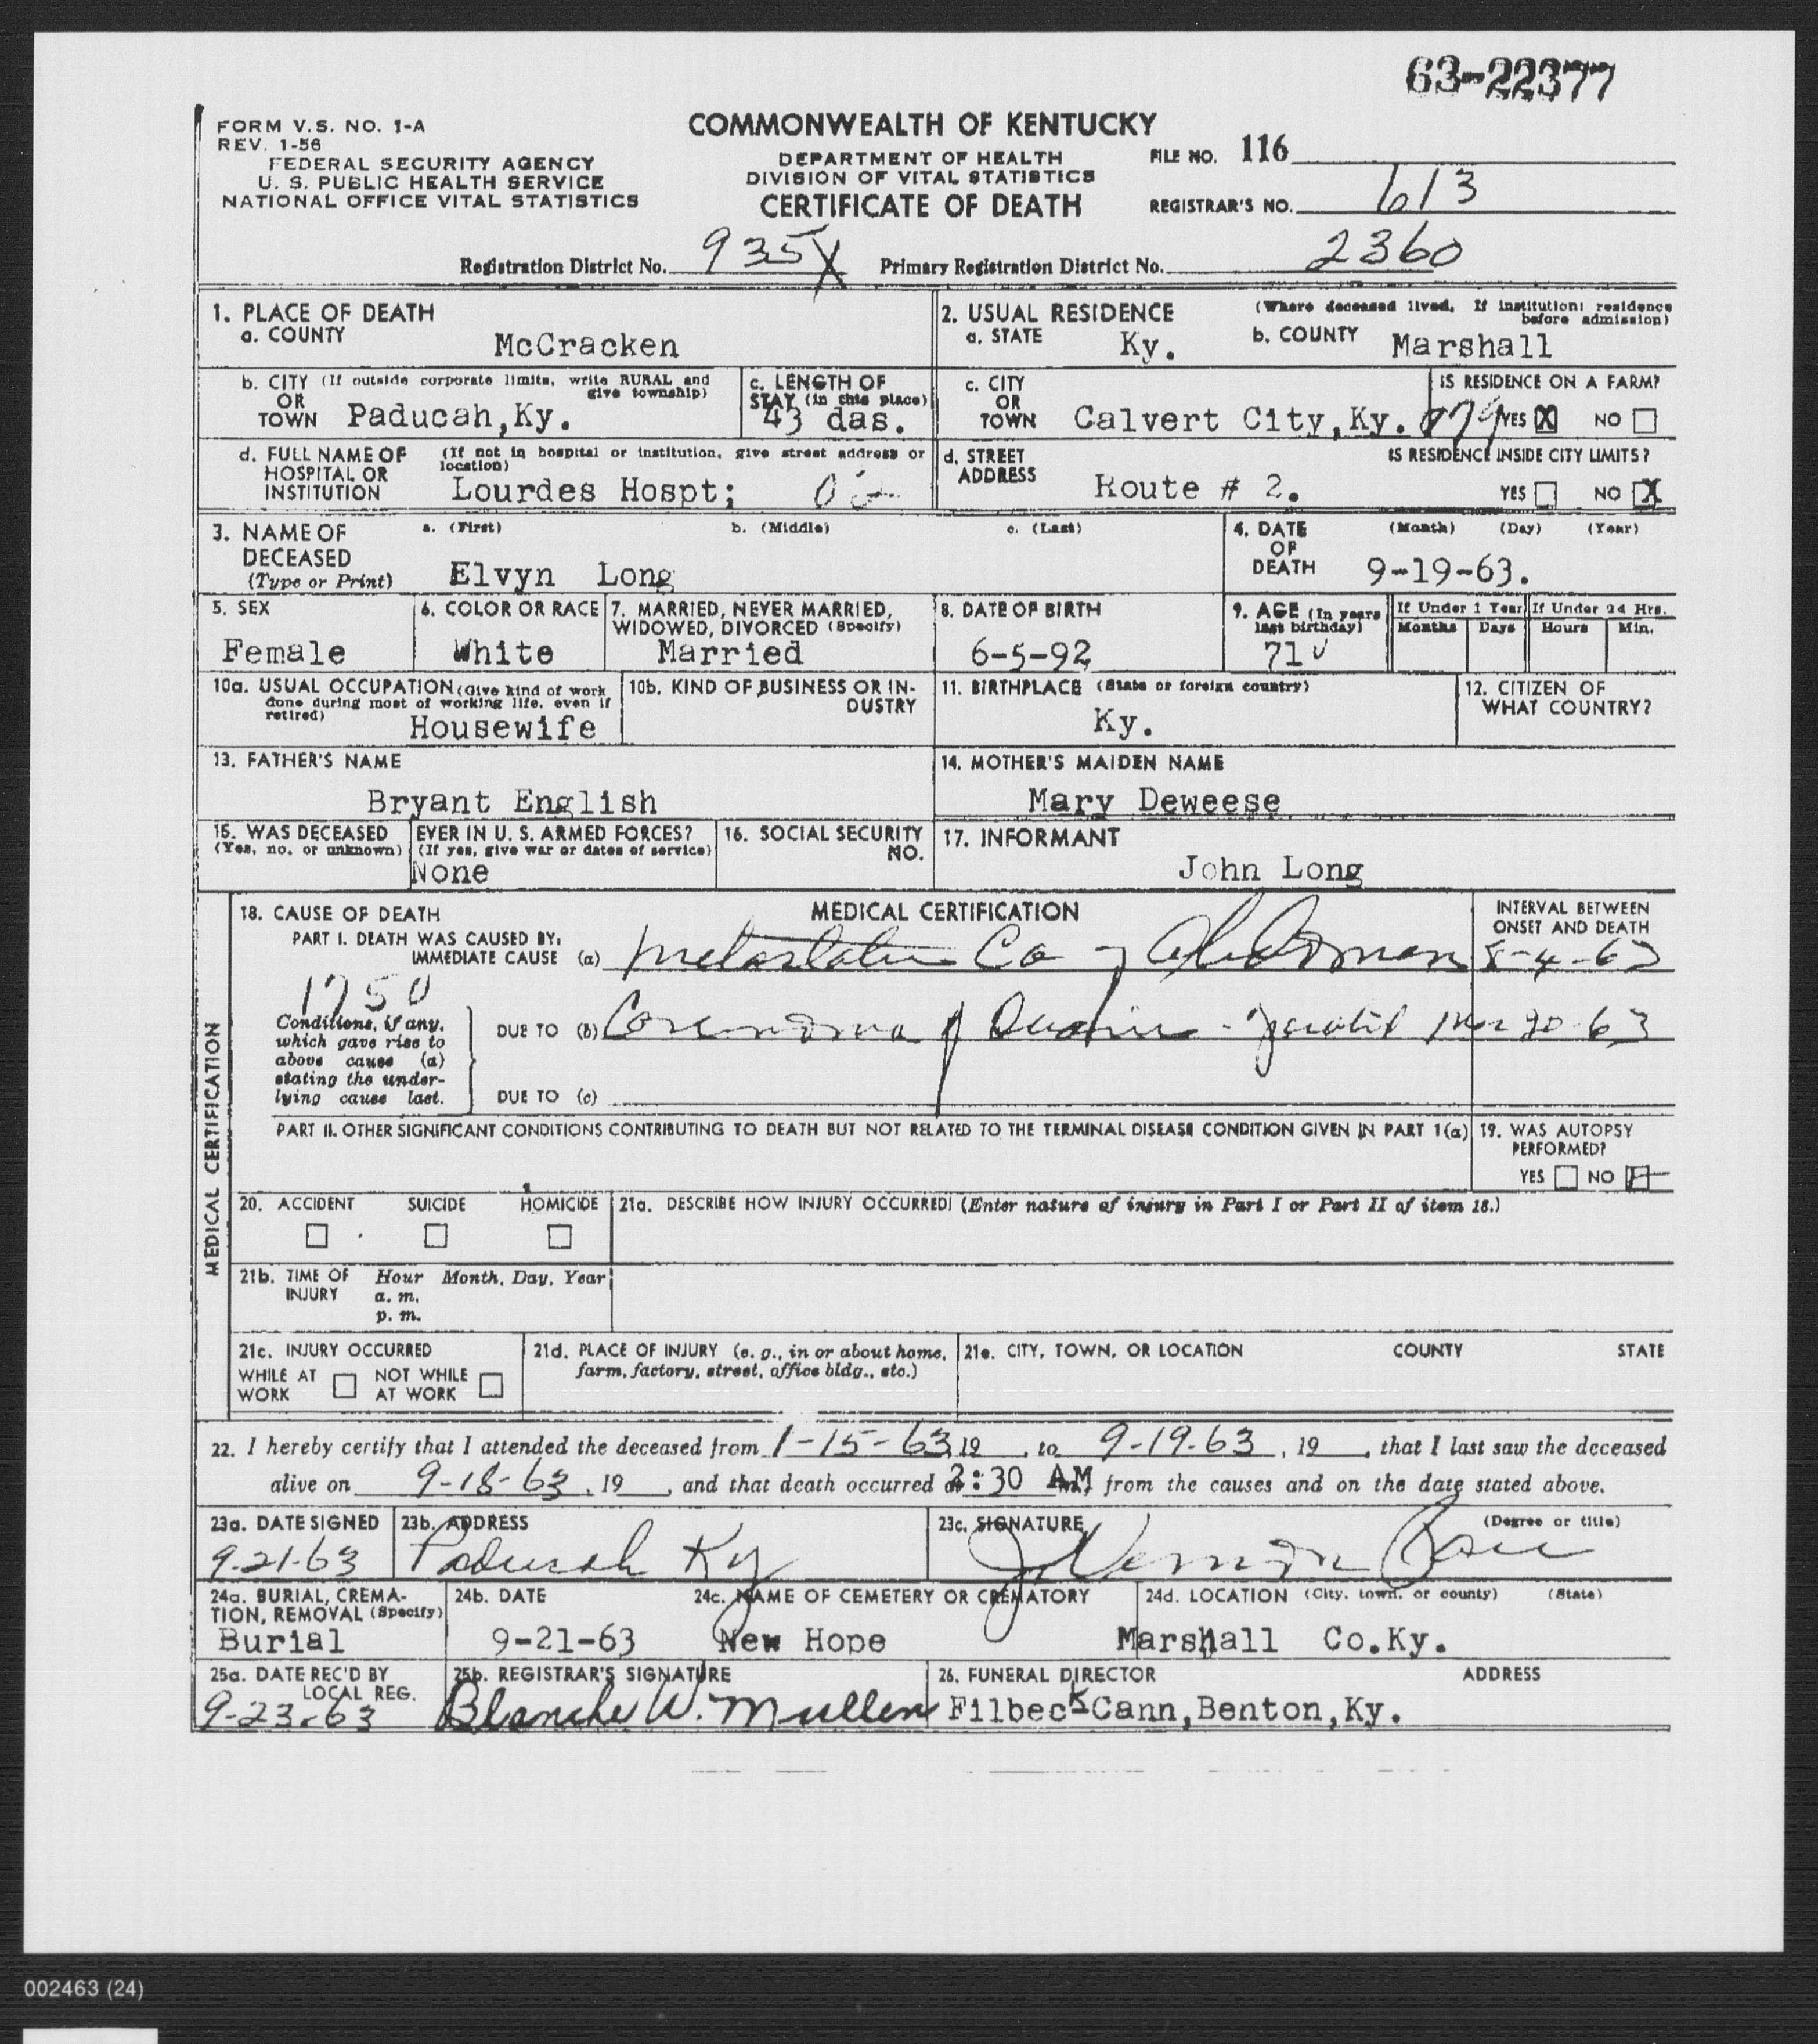 63-22377
FORM V.S. NO. 1-A
REV. 1-56
FEDERAL SECURITY AGENCY
U. S. PUBLIC HEALTH SERVICE
NATIONAL OFFICE VITAL STATISTICS
COMMONWEALTH OF KENTUCKY
DEPARTMENT OF HEALTH
DIVISION OF VITAL STATISTICS
CERTIFICATE OF DEATH
FILE NO. 116
REGISTRAR'S NO. 613
Registration District No. 935X Primary Registration District No. 2360
1. PLACE OF DEATH
a. COUNTY
McCracken
2. USUAL RESIDENCE (Where deceased lived. If institution: residence before admission)
a. STATE Ky. b. COUNTY Marshall
b. CITY (If outside corporate limits, write RURAL and give township)
OR
TOWN Paducah,Ky.
c. LENGTH OF
STAY (in this place)
43 das.
c. CITY
OR
TOWN Calvert City,Ky. 079
IS RESIDENCE ON A FARM?
YES X NO
d. FULL NAME OF (If not in hospital or institution, give street address or location)
HOSPITAL OR
INSTITUTION Lourdes Hospt;
d. STREET
ADDRESS Route # 2.
IS RESIDENCE INSIDE CITY LIMITS?
YES NO X
3. NAME OF
DECEASED
(Type or Print)
a. (First) b. (Middle) c. (Last)
Elvyn Long
4. DATE
OF
DEATH
(Month) (Day) (Year)
9-19-63.
5. SEX
Female
6. COLOR OR RACE
White
7. MARRIED, NEVER MARRIED,
WIDOWED, DIVORCED (Specify)
Married
8. DATE OF BIRTH
6-5-92
9. AGE (In years
last birthday)
71
If Under 1 Year If Under 24 Hrs.
Months Days Hours Min.
10a. USUAL OCCUPATION (Give kind of work
done during most of working life, even if
retired)
Housewife
10b. KIND OF BUSINESS OR IN-
DUSTRY
11. BIRTHPLACE (State or foreign country)
Ky.
12. CITIZEN OF
WHAT COUNTRY?
13. FATHER'S NAME
Bryant English
14. MOTHER'S MAIDEN NAME
Mary Deweese
15. WAS DECEASED EVER IN U. S. ARMED FORCES?
(Yes, no, or unknown) (If yes, give war or dates of service)
None
16. SOCIAL SECURITY
NO.
17. INFORMANT
John Long
MEDICAL CERTIFICATION
18. CAUSE OF DEATH
MEDICAL CERTIFICATION
INTERVAL BETWEEN
ONSET AND DEATH
PART I. DEATH WAS CAUSED BY:
IMMEDIATE CAUSE (a) Metastatic Ca of Abdomen 8-4-63
1750
Conditions, if any,
which gave rise to
above cause (a)
stating the under-
lying cause last.
DUE TO (b) Carcinoma of 63
DUE TO (c)
PART II. OTHER SIGNIFICANT CONDITIONS CONTRIBUTING TO DEATH BUT NOT RELATED TO THE TERMINAL DISEASE CONDITION GIVEN IN PART 1(a)
19. WAS AUTOPSY
PERFORMED?
YES NO
20. ACCIDENT SUICIDE HOMICIDE
21a. DESCRIBE HOW INJURY OCCURRED (Enter nature of injury in Part I or Part II of item 18.)
21b. TIME OF
INJURY
Hour Month, Day, Year
a. m.
p. m.
21c. INJURY OCCURRED
WHILE AT
WORK
NOT WHILE
AT WORK
21d. PLACE OF INJURY (e. g., in or about home,
farm, factory, street, office bldg., etc.)
21e. CITY, TOWN, OR LOCATION COUNTY STATE
22. I hereby certify that I attended the deceased from 1-15-63, 19 , to 9-19-63, 19 , that I last saw the deceased
alive on 9-18-63, 19 , and that death occurred at 2:30 AM, from the causes and on the date stated above.
23a. DATE SIGNED
9-21-63
23b. ADDRESS
Paducah Ky
23c. SIGNATURE (Degree or title)
J Vernon Pace
24a. BURIAL, CREMA-
TION, REMOVAL (Specify)
Burial
24b. DATE
9-21-63
24c. NAME OF CEMETERY OR CREMATORY
New Hope
24d. LOCATION (City, town, or county) (State)
Marshall Co.Ky.
25a. DATE REC'D BY
LOCAL REG.
9-23-63
25b. REGISTRAR'S SIGNATURE
Blanche W. Mullen
26. FUNERAL DIRECTOR ADDRESS
Filbeck Cann,Benton,Ky.
002463 (24)